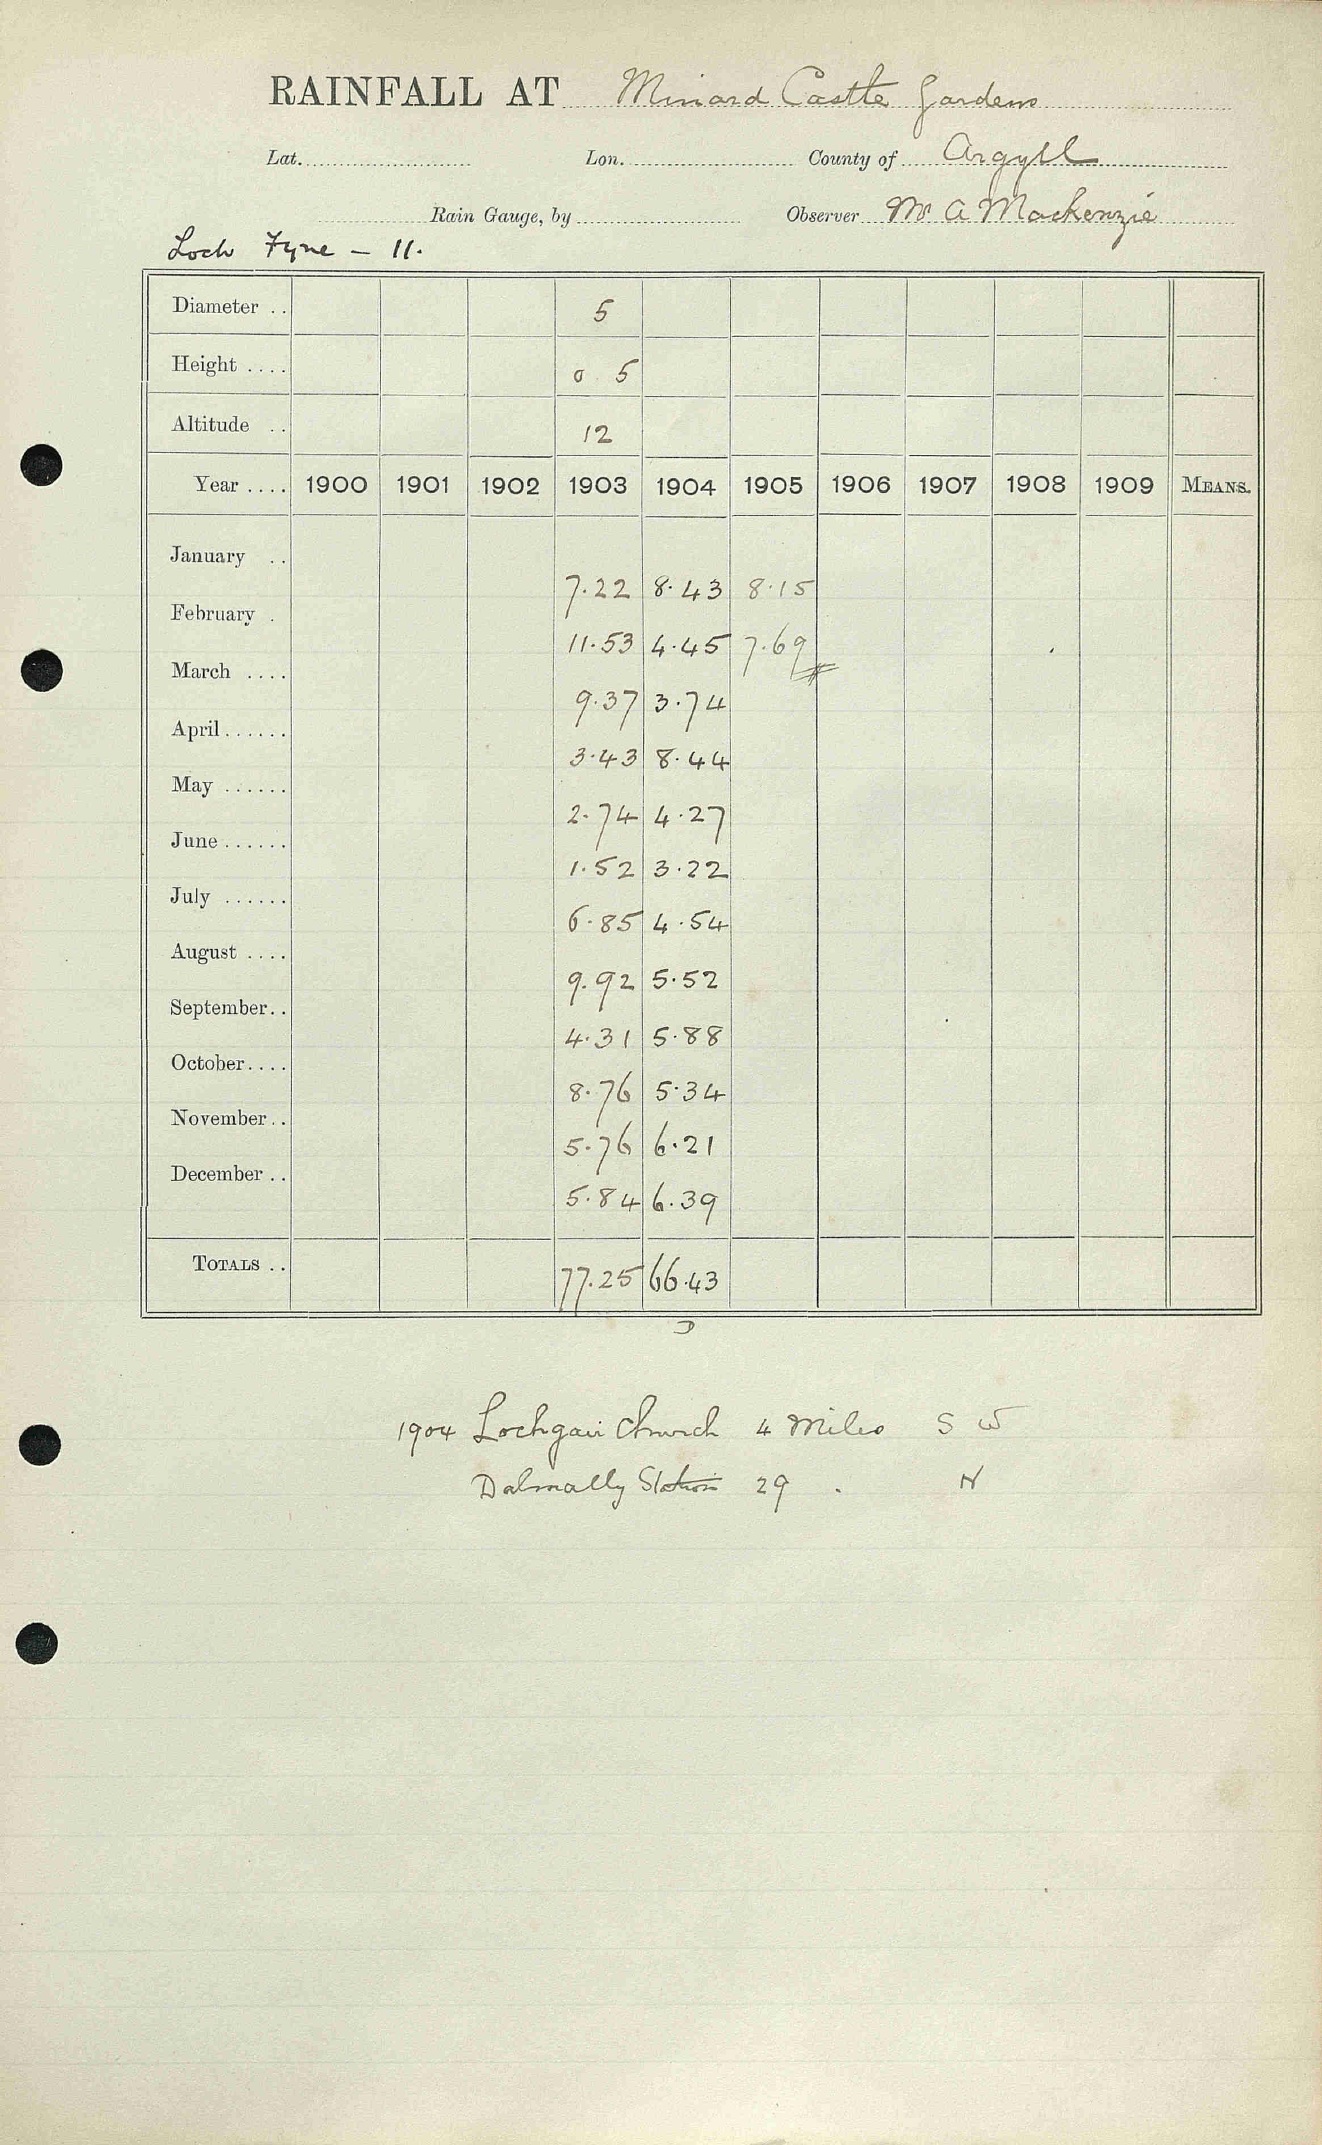 RAINFALL AT Minard Castle Gardens
Lat. Lon. County of Argyll
Rain Gauge, by Observer Mr A Mackenzie
Loch Fyne - 11.
Diameter .. 5
Height .... 0 5
Altitude .. 12
Year .... 1900 1901 1902 1903 1904 1905 1906 1907 1908 1909 MEANS.
January .. 7.22 8.43 8.15
February . 11.53 4.45 7.69
March .... 9.37 3.74
April ...... 3.43 8.44
May ...... 2.74 4.27
June ...... 1.52 3.22
July ...... 6.85 4.54
August .... 9.92 5.52
September.. 4.31 5.88
October.... 8.76 5.34
November.. 5.76 6.21
December .. 5.84 6.39
TOTALS .. 77.25 66.43
1904 Lochgair Church 4 Miles S W
Dalmally Station 29 . N